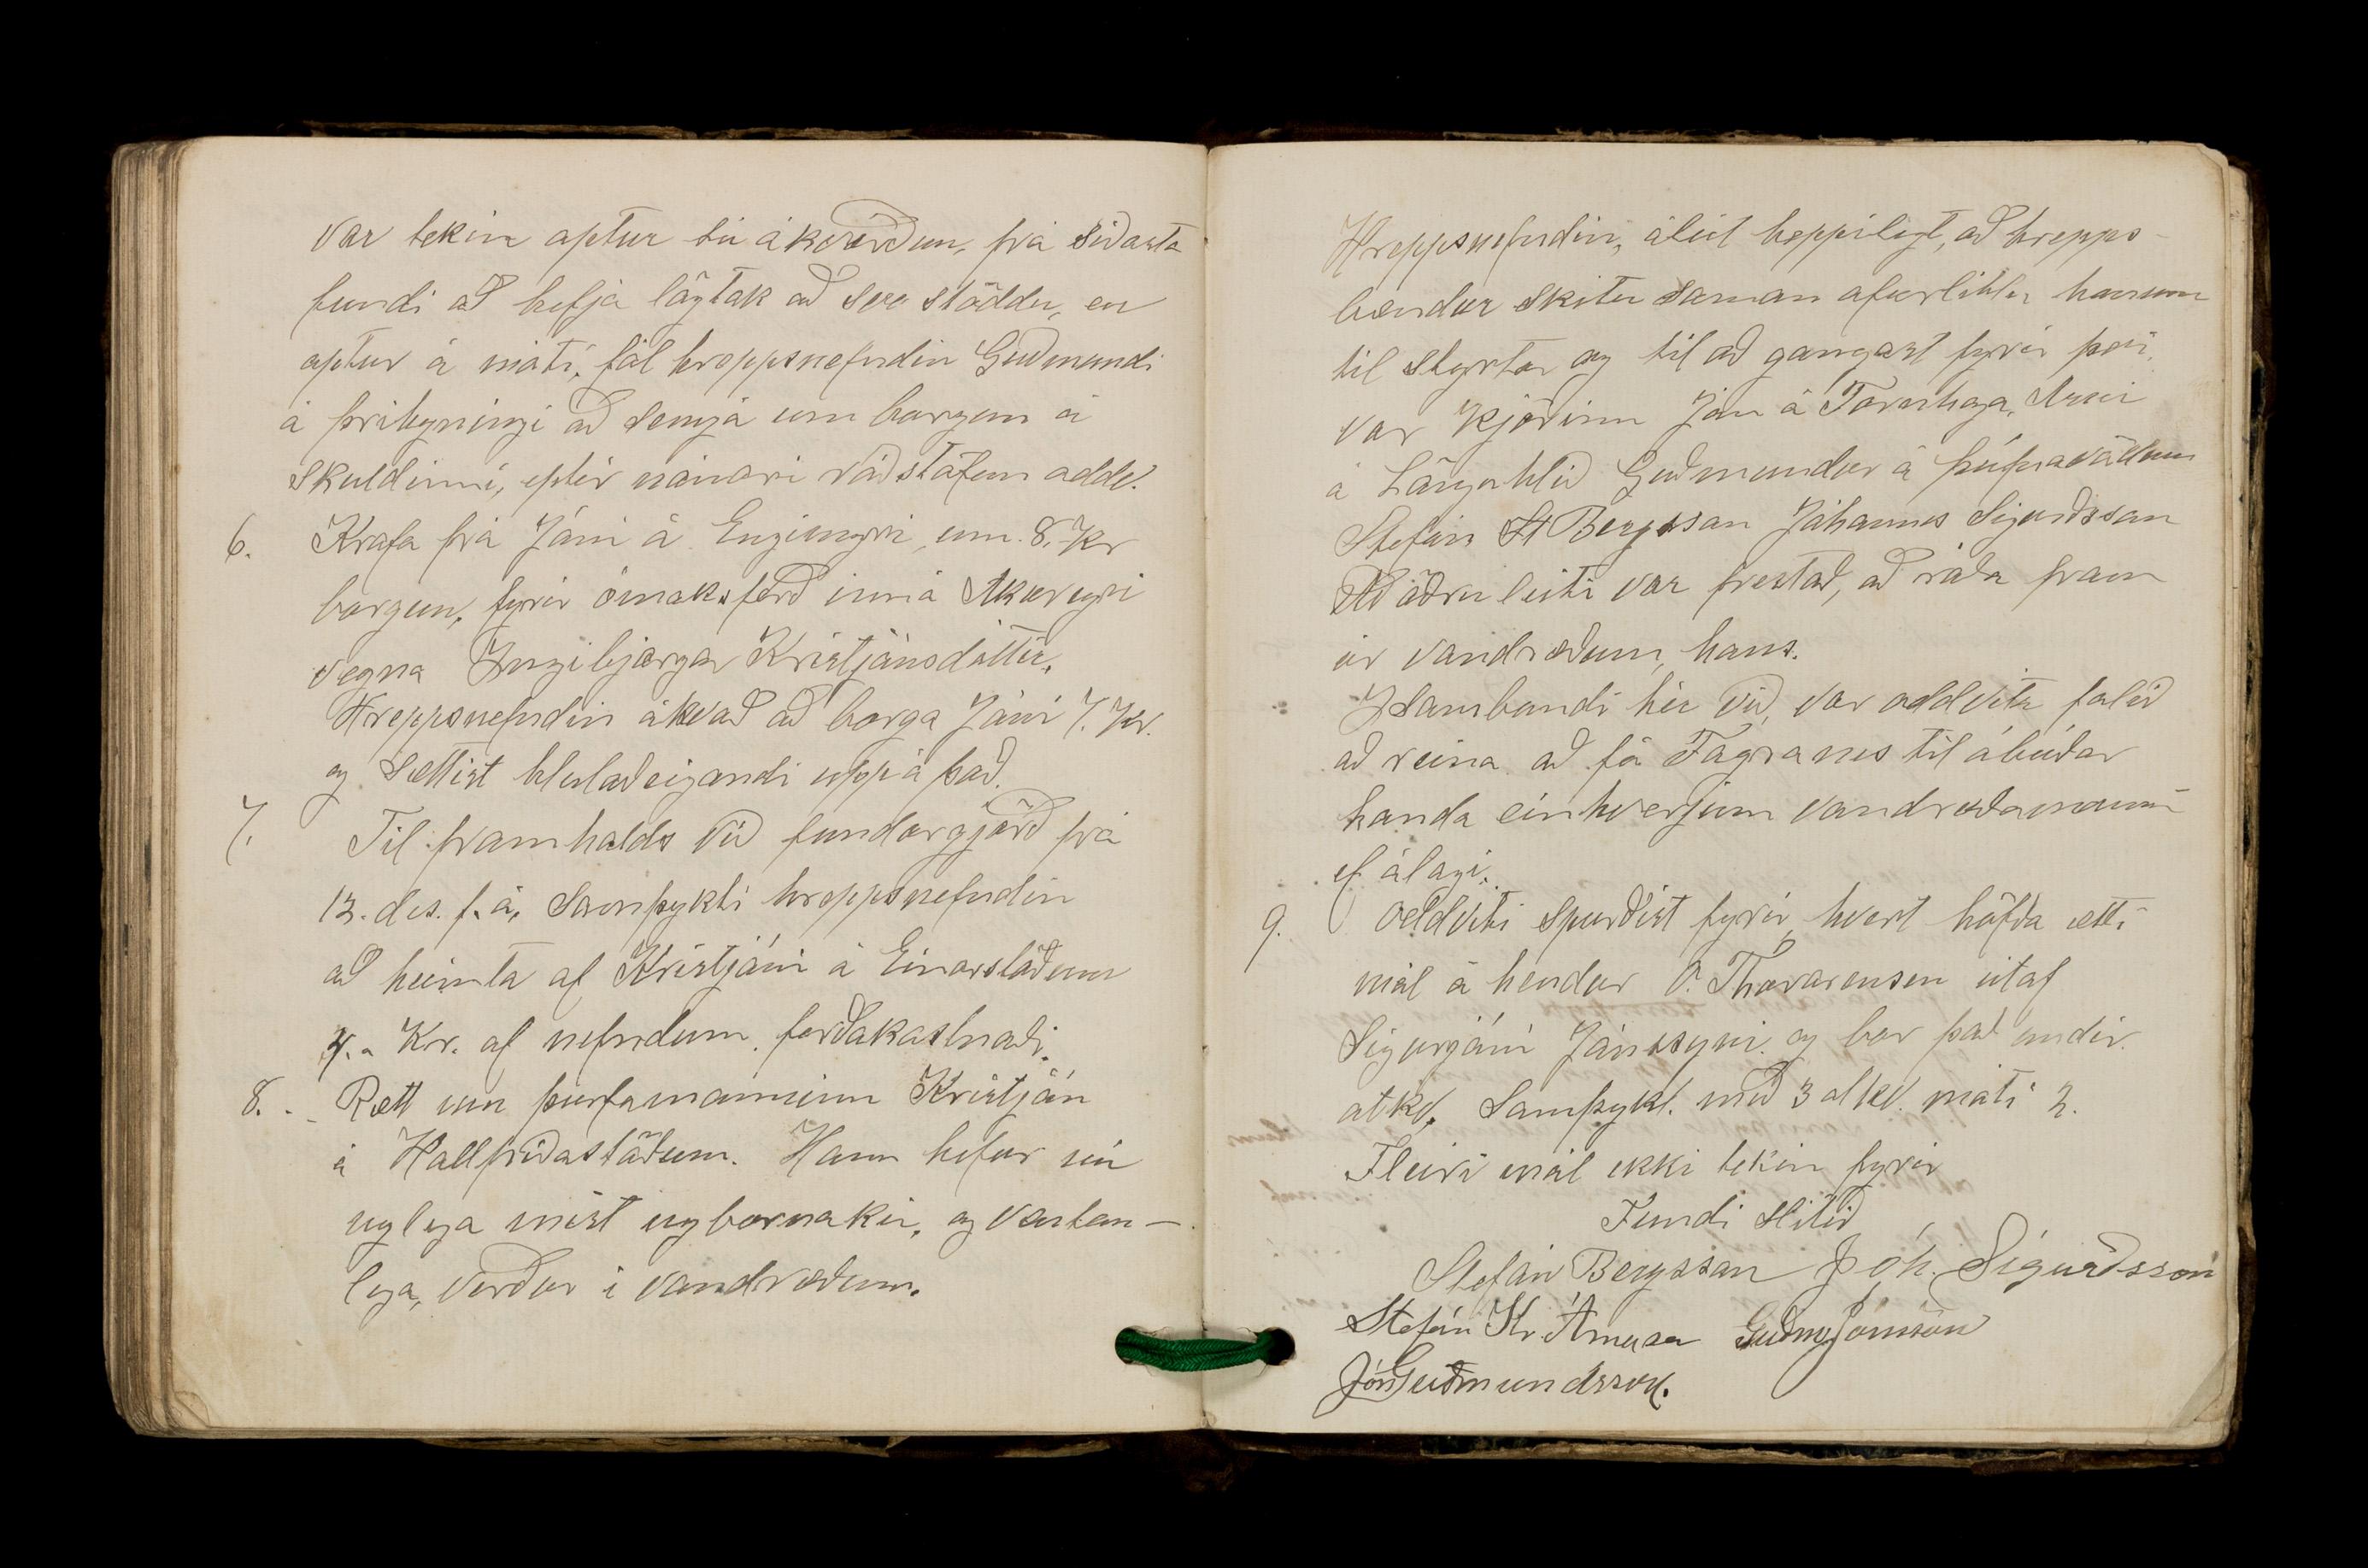 var tekin aptur sú ákvörðun, frá síðasta
fundi að hefja lögtak að svo stöddu, en
aptur á móti, fól hreppsnefndin Guðmundi
á Þríhyrningi að semja um borgun á
skuldinni, eptir nánari ráðstöfun oddv.
6. Krafa frá Jóni á Engimýri, um 8. Kr
borgun, fyrir ómaksferð inná Akureyri
vegna Ingibjargar Kristjánsdóttir.
Hreppsnefndin ákvað að borga Jóni 7. Kr.
og sættist hlutaðeigandi uppá það.
7. Til framhalds við fundargjörð frá
12. des. f. á. samþykti hreppsnefndin
að heimta af Kristjáni á Einarstöðum
4.- Kr. af nefndum ferðakostnaði.
8. - Rætt um þurfamanninn Kristján
á Hallfríðastöðum. Hann hefur nú
nýlega mist nýborna kú, og vantan-
lega, verður í vandræðum.
Hreppsnefndin, áleit heppilegt, að hrepps-
bændur skitu saman ofurlitlu honum
til styrktar og til að gangast fyrir því,
var kjörinn Jón á Tornhaga, Árni
á Lönguhlíð Guðmundur á Þúfnavöllum
Stefán St Bergsson Jóhannes Sigurðsson
Að öðru leiti var frestað, að ráða fram
úr vandræðum, hans.
Í sambandi hér við, var oddvita falið
að reina að fá Fagranes til ábúðar
handa einhverjum vandræðamanni
ef á lægi.
9. Oddviti spurðist fyrir, hvert höfða ætti
mál á hendur O. Thorarensen útaf
Sigurjóni Jónssyni og bar það undir
atkv, samþykt. með 3 atkv. móti 2.
Fleiri mál ekki tekin fyrir
Fundi slitið
Stefán Bergsson Jóh. Sigurðsson
Stefán Kr. Guðm Jónsson
Jón Guðmundsson.